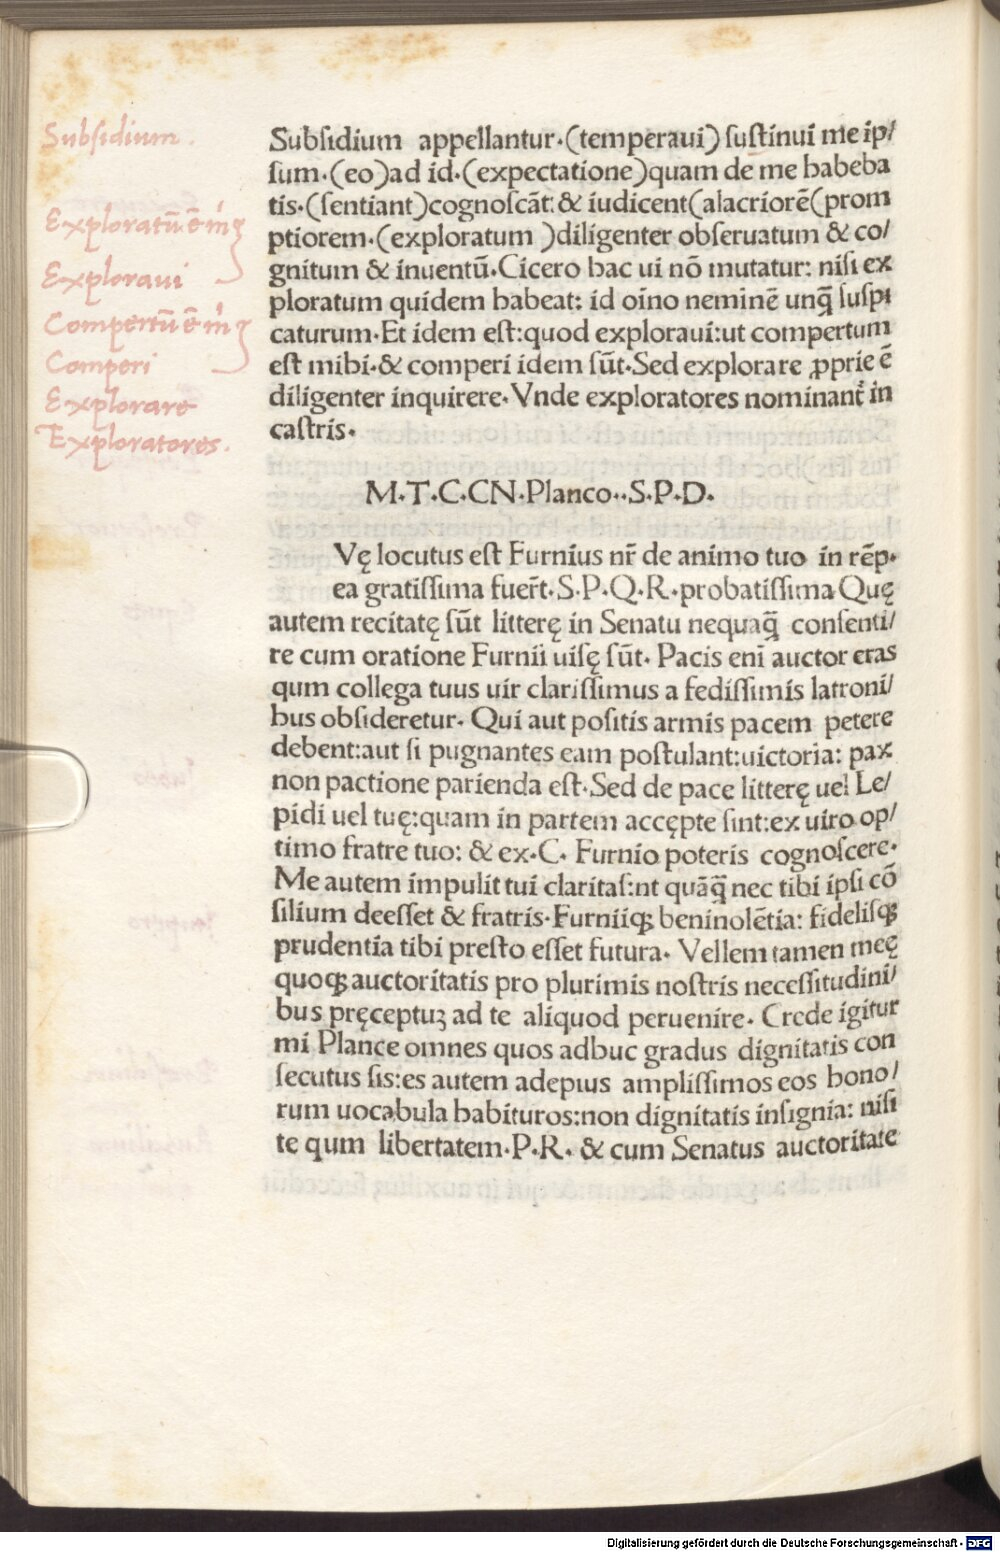 Subsidium.
Exploratū ē m̄
Exploraui
Compertū ē m̄
Comperi
Explorare
Exploratores.
Subsidium appellantur·(temperaui) sustinui me ip/
sum·(eo)ad id·(expectatione)quam de me habeba
tis·(sentiant)cognoscāt: & iudicent(alacriorē(prom
ptiorem·(exploratum )diligenter obseruatum & co/
gnitum & inuentū·Cicero hac ui nō mutatur: nisi ex
ploratum quidem habeat: id oīno neminē unq̄ suspi
caturum·Et idem est:quod exploraui:ut compertum
est mihi·& comperi idem sūt·Sed explorare ꝓprie ē
diligenter inquirere·Vnde exploratores nominant̄ in
castris·
M·T·C·CN·Planco··S·P·D·
Vę locutus est Furnius nr̄ de animo tuo in rēp·
ea gratissima fuer̄t·S·P·Q·R·probatissima·Quę
autem recitatę sūt litterę in Senatu nequaq̄ consenti/
re cum oratione Furnii uisę sūt· Pacis enī auctor eras
qum collega tuus uir clarissimus a fedissimis latroni/
bus obsideretur· Qui aut positis armis pacem petere
debent:aut si pugnantes eam postulant:uictoria: pax
non pactione parienda est·Sed de pace litterę uel Le/
pidi uel tuę:quam in partem accępte sint:ex uiro op/
timo fratre tuo: & ex·C· Furnio poteris cognoscere·
Me autem impulit tui claritas:nt quāq̄ nec tibi ipsi cō
silium deesset & fratris·Furniiqꝫ beninolētia: fidelisqꝫ
prudentia tibi presto esset futura· Vellem tamen meę
quoqꝫ auctoritatis pro plurimis nostris necessitudini/
bus pręceptuꝫ ad te aliquod peruenire· Crede igitur
mi Plance omnes quos adhuc gradus dignitatis con
secutus sis:es autem adeptus amplissimos eos hono/
rum uocabula habituros:non dignitatis insignia: nisi
te qum libertatem·P·R· & cum Senatus auctoritate
Digitalisierung gefördert durch die Deutsche Forschungsgemeinschaft - DFG